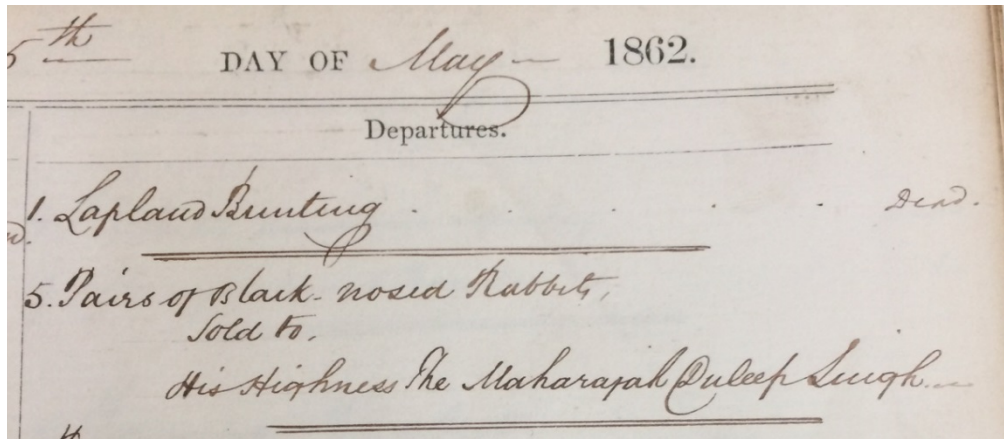 5th DAY OF May 1862.
Departures.
1. Lapland Bunting . . . . . Dead.
5. Pairs of Black-nosed Rabbits,
Sold to,
His Highness The Maharajah Duleep Singh.